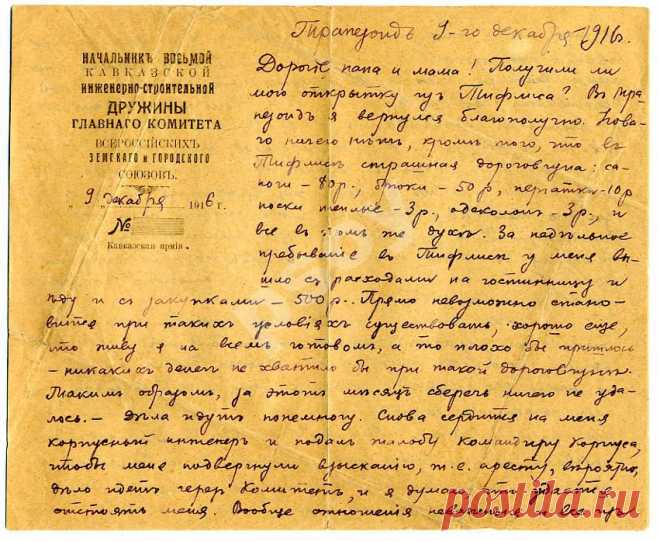 Трапезондъ 9-го декабря 1916г.
НАЧАЛЬНИКЪ ВОСЬМОЙ
КАВКАЗСКОЙ
ИНЖЕНЕРНО-СТРОИТЕЛЬНОЙ
ДРУЖИНЫ
ГЛАВНАГО КОМИТЕТА
ВСЕРОССІЙСКИХЪ
ЗЕМСКАГО и ГОРОДСКОГО
СОЮЗОВЪ.
„ 9 „ декабря 1916 г.
№
Кавказская армія.
Дорогіе папа и мама! Получили ли
мою открытку изъ Тифлиса? Въ Тра-
пезондъ я вернулся благополучно. Нова-
го ничего нѣтъ, кромѣ того, что въ
Тифлисѣ страшная дороговизна: са-
поги - 80 р., брюки - 50 р, перчатки - 10 р
носки теплые - 3 р., одеколонъ - 3 р., и
все въ томъ же духѣ. За недѣльное
пребываніе въ Тифлисѣ у меня вы-
шло съ расходами на гостинницу и
ѣду и съ закупками - 500 р.. Прямо невозможно стано-
вится при такихъ условіяхъ существовать, хорошо еще,
что живу я на всемъ готовомъ, а то плохо бы пришлось
- никакихъ денегъ не хватило бы при такой дороговизнѣ.
Такимъ образомъ, за этотъ мѣсяцъ сберечь ничего не уда-
лось. - Дѣла идутъ понемногу. Снова сердится на меня
корпусный инженеръ и подалъ жалобу Командиру Корпуса,
чтобы меня подвергнули взысканію, т.е. аресту, вѣроятно,
дѣло идетъ черезъ Комитетъ, и я думаю
отстоять меня. Вообще отношенія все
postila.ru